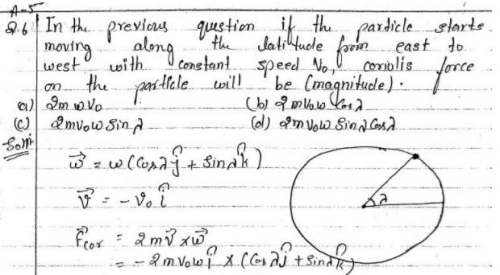 A-5
Q.6 In the previous question if the particle starts
moving along the latitude from east to
west with constant speed V₀, coriolis force
on the particle will be (magnitude).
(a) 2mωV₀ (b) 2mV₀ω Cosλ
(c) 2mV₀ω Sinλ (d) 2mV₀ω Sinλ Cosλ
Solⁿ:
ω⃗ = ω (Cosλ ĵ + Sinλ k̂)
V⃗ = - V₀ î
F⃗cor = 2m V⃗ × ω⃗
= - 2m V₀ω î × (Cosλ ĵ + Sinλ k̂)
λ